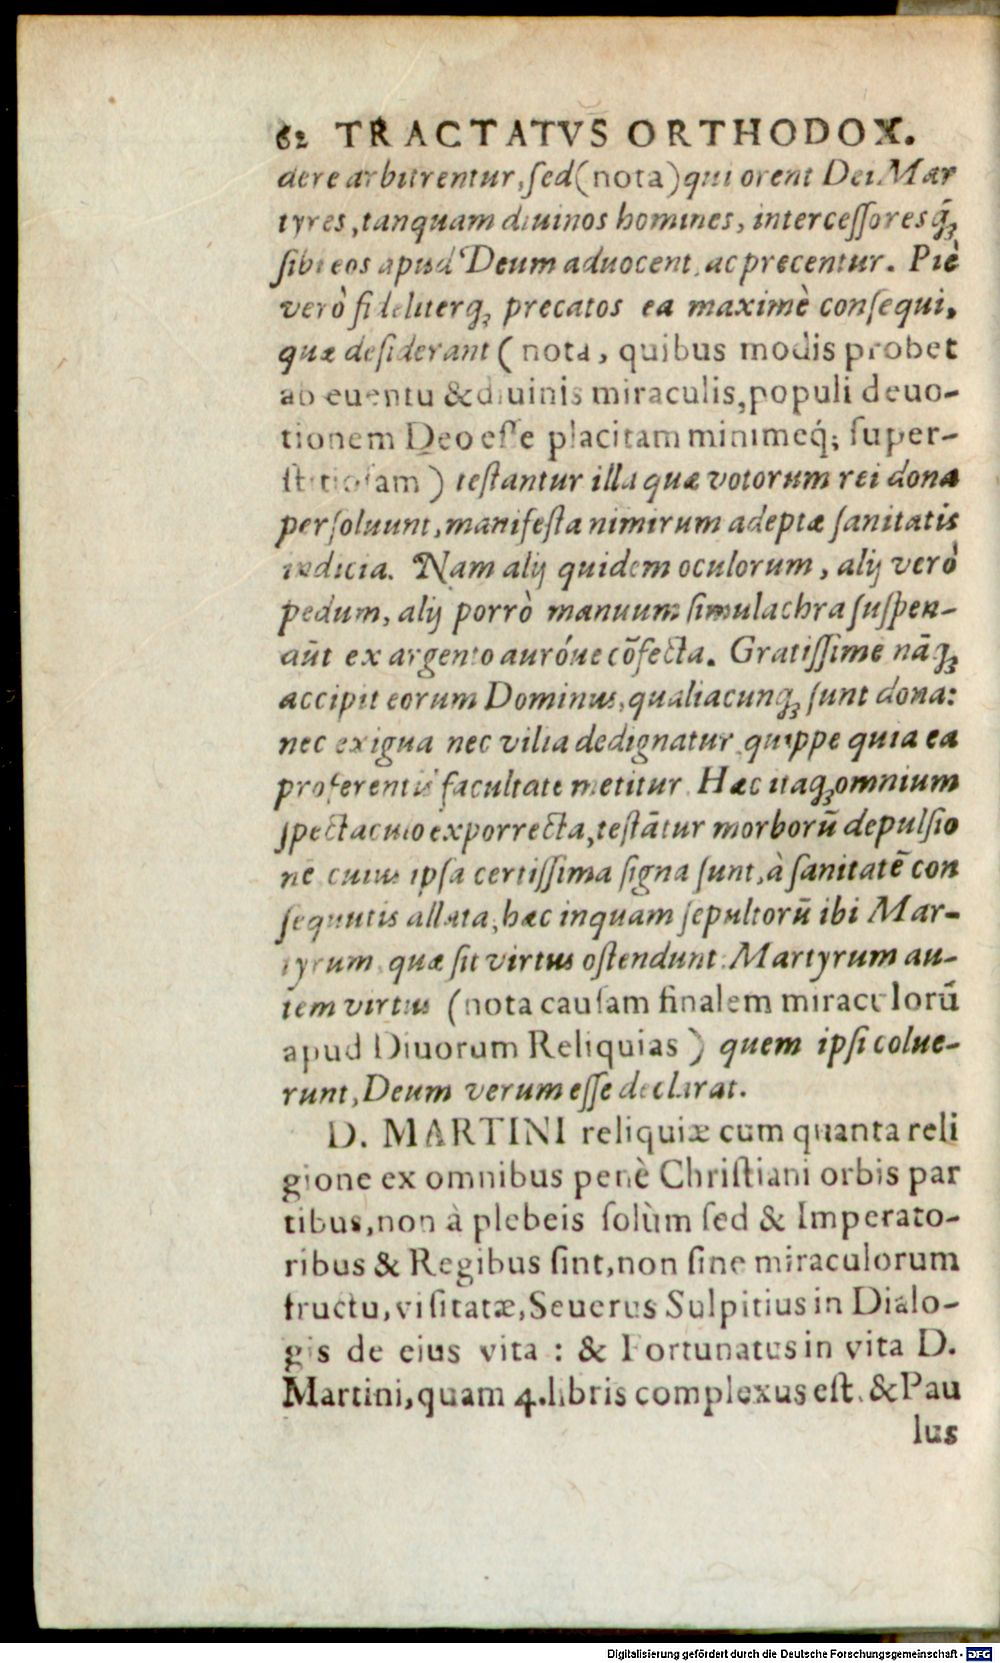 62 TRACTATVS ORTHODOX.
dere arbitrentur, sed (nota) qui orent Dei Mar
tyres, tanquam diuinos homines, intercessoresq́ꝫ
sibi eos apud Deum aduocent, ac precentur. Piè
verò fideliterqꝫ precatos ea maximè consequi,
quæ desiderant ( nota, quibus modis probet
ab euentu & diuinis miraculis, populi deuo-
tionem Deo esse placitam minimeq́; super-
stitiosam ) testantur illa quæ votorum rei dona
persoluunt, manifesta nimirum adeptæ sanitatis
indicia. Nam alij quidem oculorum, alij verò
pedum, alij porrò manuum simulachra suspen-
dūt ex argento auróue cōfecta. Gratissime nāqꝫ
accipit eorum Dominus, qualiacunqꝫ sunt dona:
nec exigua nec vilia dedignatur quippe quia ea
proferentis facultate metitur. Hæc itaqꝫ omnium
spectaculo exporrecta, testātur morborū depulsio
nē cuius ipsa certissima signa sunt, à sanitatē con
sequutis allata, hæc inquam sepultorū ibi Mar-
tyrum, quæ sit virtus ostendunt: Martyrum au-
tem virtus (nota causam finalem miraculorū
apud Diuorum Reliquias ) quem ipsi colue-
runt, Deum verum esse declarat.
D. MARTINI reliquiæ cum quanta reli
gione ex omnibus penè Christiani orbis par
tibus, non à plebeis solùm sed & Imperato-
ribus & Regibus sint, non sine miraculorum
fructu, visitatæ, Seuerus Sulpitius in Dialo-
gis de eius vita : & Fortunatus in vita D.
Martini, quam 4. libris complexus est. & Pau
lus
Digitalisierung gefördert durch die Deutsche Forschungsgemeinschaft - DFG